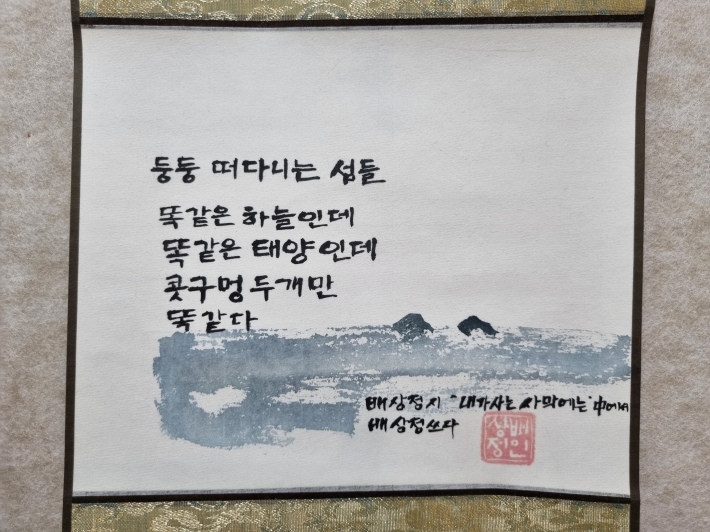 둥둥 떠다니는 섬들
똑같은 하늘인데
똑같은 태양인데
콧구멍 두개만
똑같다
배상정시 "내가사는 사막에는" 中에서
배상정쓰다
배상정인